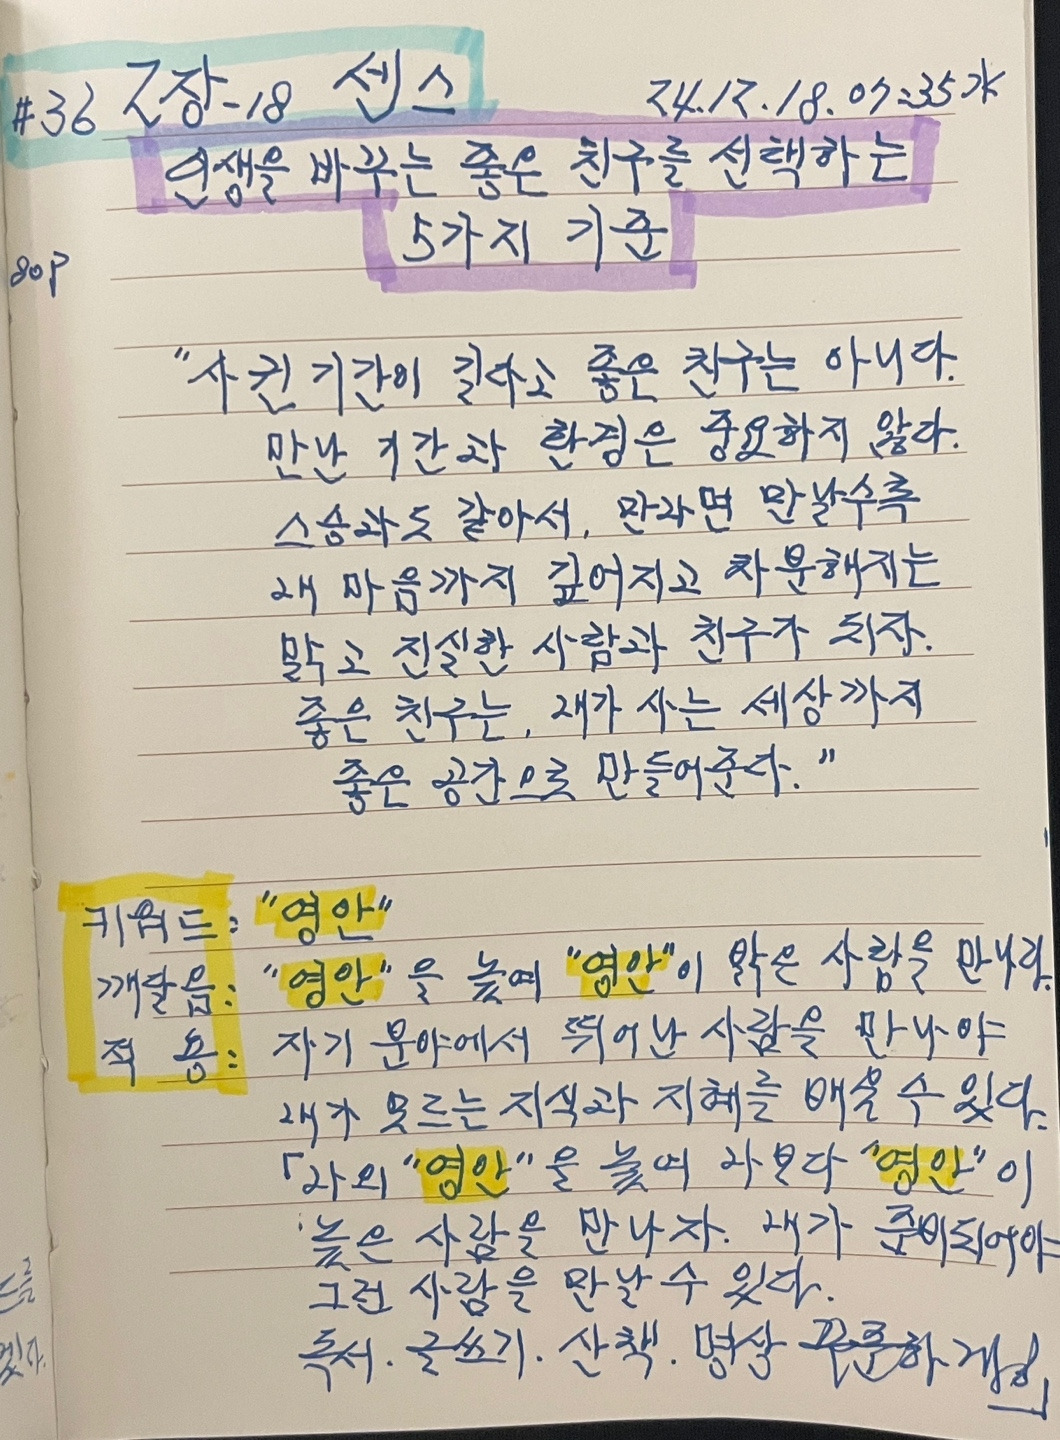 #36 2장-18 센스
24.12.18.07:35 水
인생을 바꾸는 좋은 친구를 선택하는
5가지 기준
80P
"사귄 기간이 길다고 좋은 친구는 아니다.
만난 기간과 환경은 중요하지 않다.
스승과도 같아서, 만나면 만날수록
내 마음까지 깊어지고 차분해지는
맑고 진실한 사람과 친구가 되자.
좋은 친구는, 내가 사는 세상까지
좋은 공간으로 만들어준다."
키워드: "영안"
깨달음: "영안"을 높여 "영안"이 맑은 사람을 만나라.
적 용: 자기 분야에서 뛰어난 사람을 만나야
내가 모르는 지식과 지혜를 배울 수 있다.
「나의 "영안"을 높여 나보다 "영안"이
높은 사람을 만나자. 내가 준비되어야
그런 사람을 만날 수 있다.
독서. 글쓰기. 산책. 명상 꾸준하게